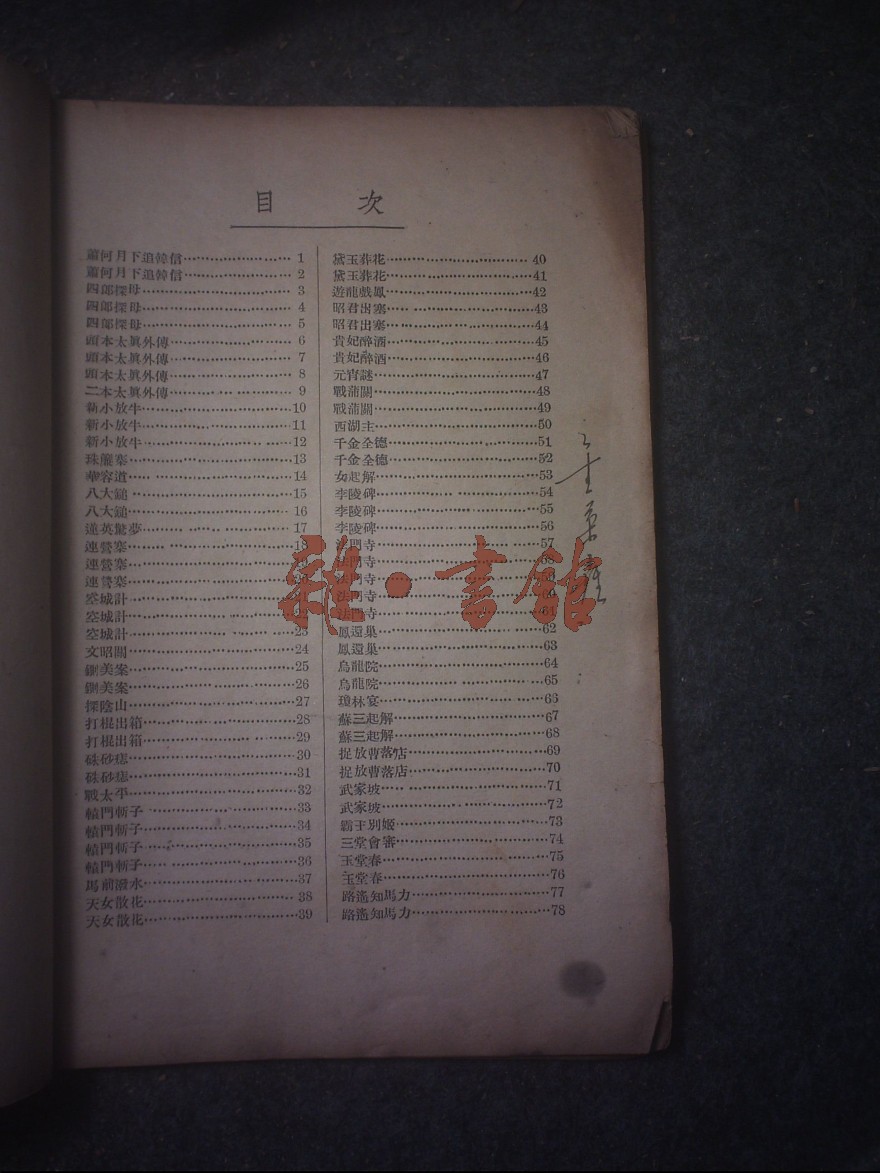 目次
蕭何月下追韓信 1
蕭何月下追韓信 2
四郎探母 3
四郎探母 4
四郎探母 5
頭本太眞外傳 6
頭本太眞外傳 7
頭本太眞外傳 8
二本太眞外傳 9
新小放牛 10
新小放牛 11
新小放牛 12
珠簾寨 13
華容道 14
八大鎚 15
八大鎚 16
驚夢 17
連營寨 18
連營寨
連營寨
空城計
空城計
空城計 23
文昭關 24
鍘美案 25
鍘美案 26
探陰山 27
打棍出箱 28
打棍出箱 29
硃砂痣 30
硃砂痣 31
戰太平 32
轅門斬子 33
轅門斬子 34
轅門斬子 35
轅門斬子 36
馬前潑水 37
天女散花 38
天女散花 39
黛玉葬花 40
黛玉葬花 41
遊龍戲鳳 42
昭君出塞 43
昭君出塞 44
貴妃醉酒 45
貴妃醉酒 46
元宵謎 47
戰蒲關 48
戰蒲關 49
西湖主 50
千金全德 51
千金全德 52
女起解 53
李陵碑 54
李陵碑 55
李陵碑 56
法門寺 57
法門寺 58
法門寺
法門寺 60
法門寺 61
鳳還巢 62
鳳還巢 63
烏龍院 64
烏龍院 65
瓊林宴 66
蘇三起解 67
蘇三起解 68
捉放曹落店 69
捉放曹落店 70
武家坡 71
武家坡 72
霸王別姬 73
三堂會審 74
玉堂春 75
玉堂春 76
路遙知馬力 77
路遙知馬力 78
雜·書館